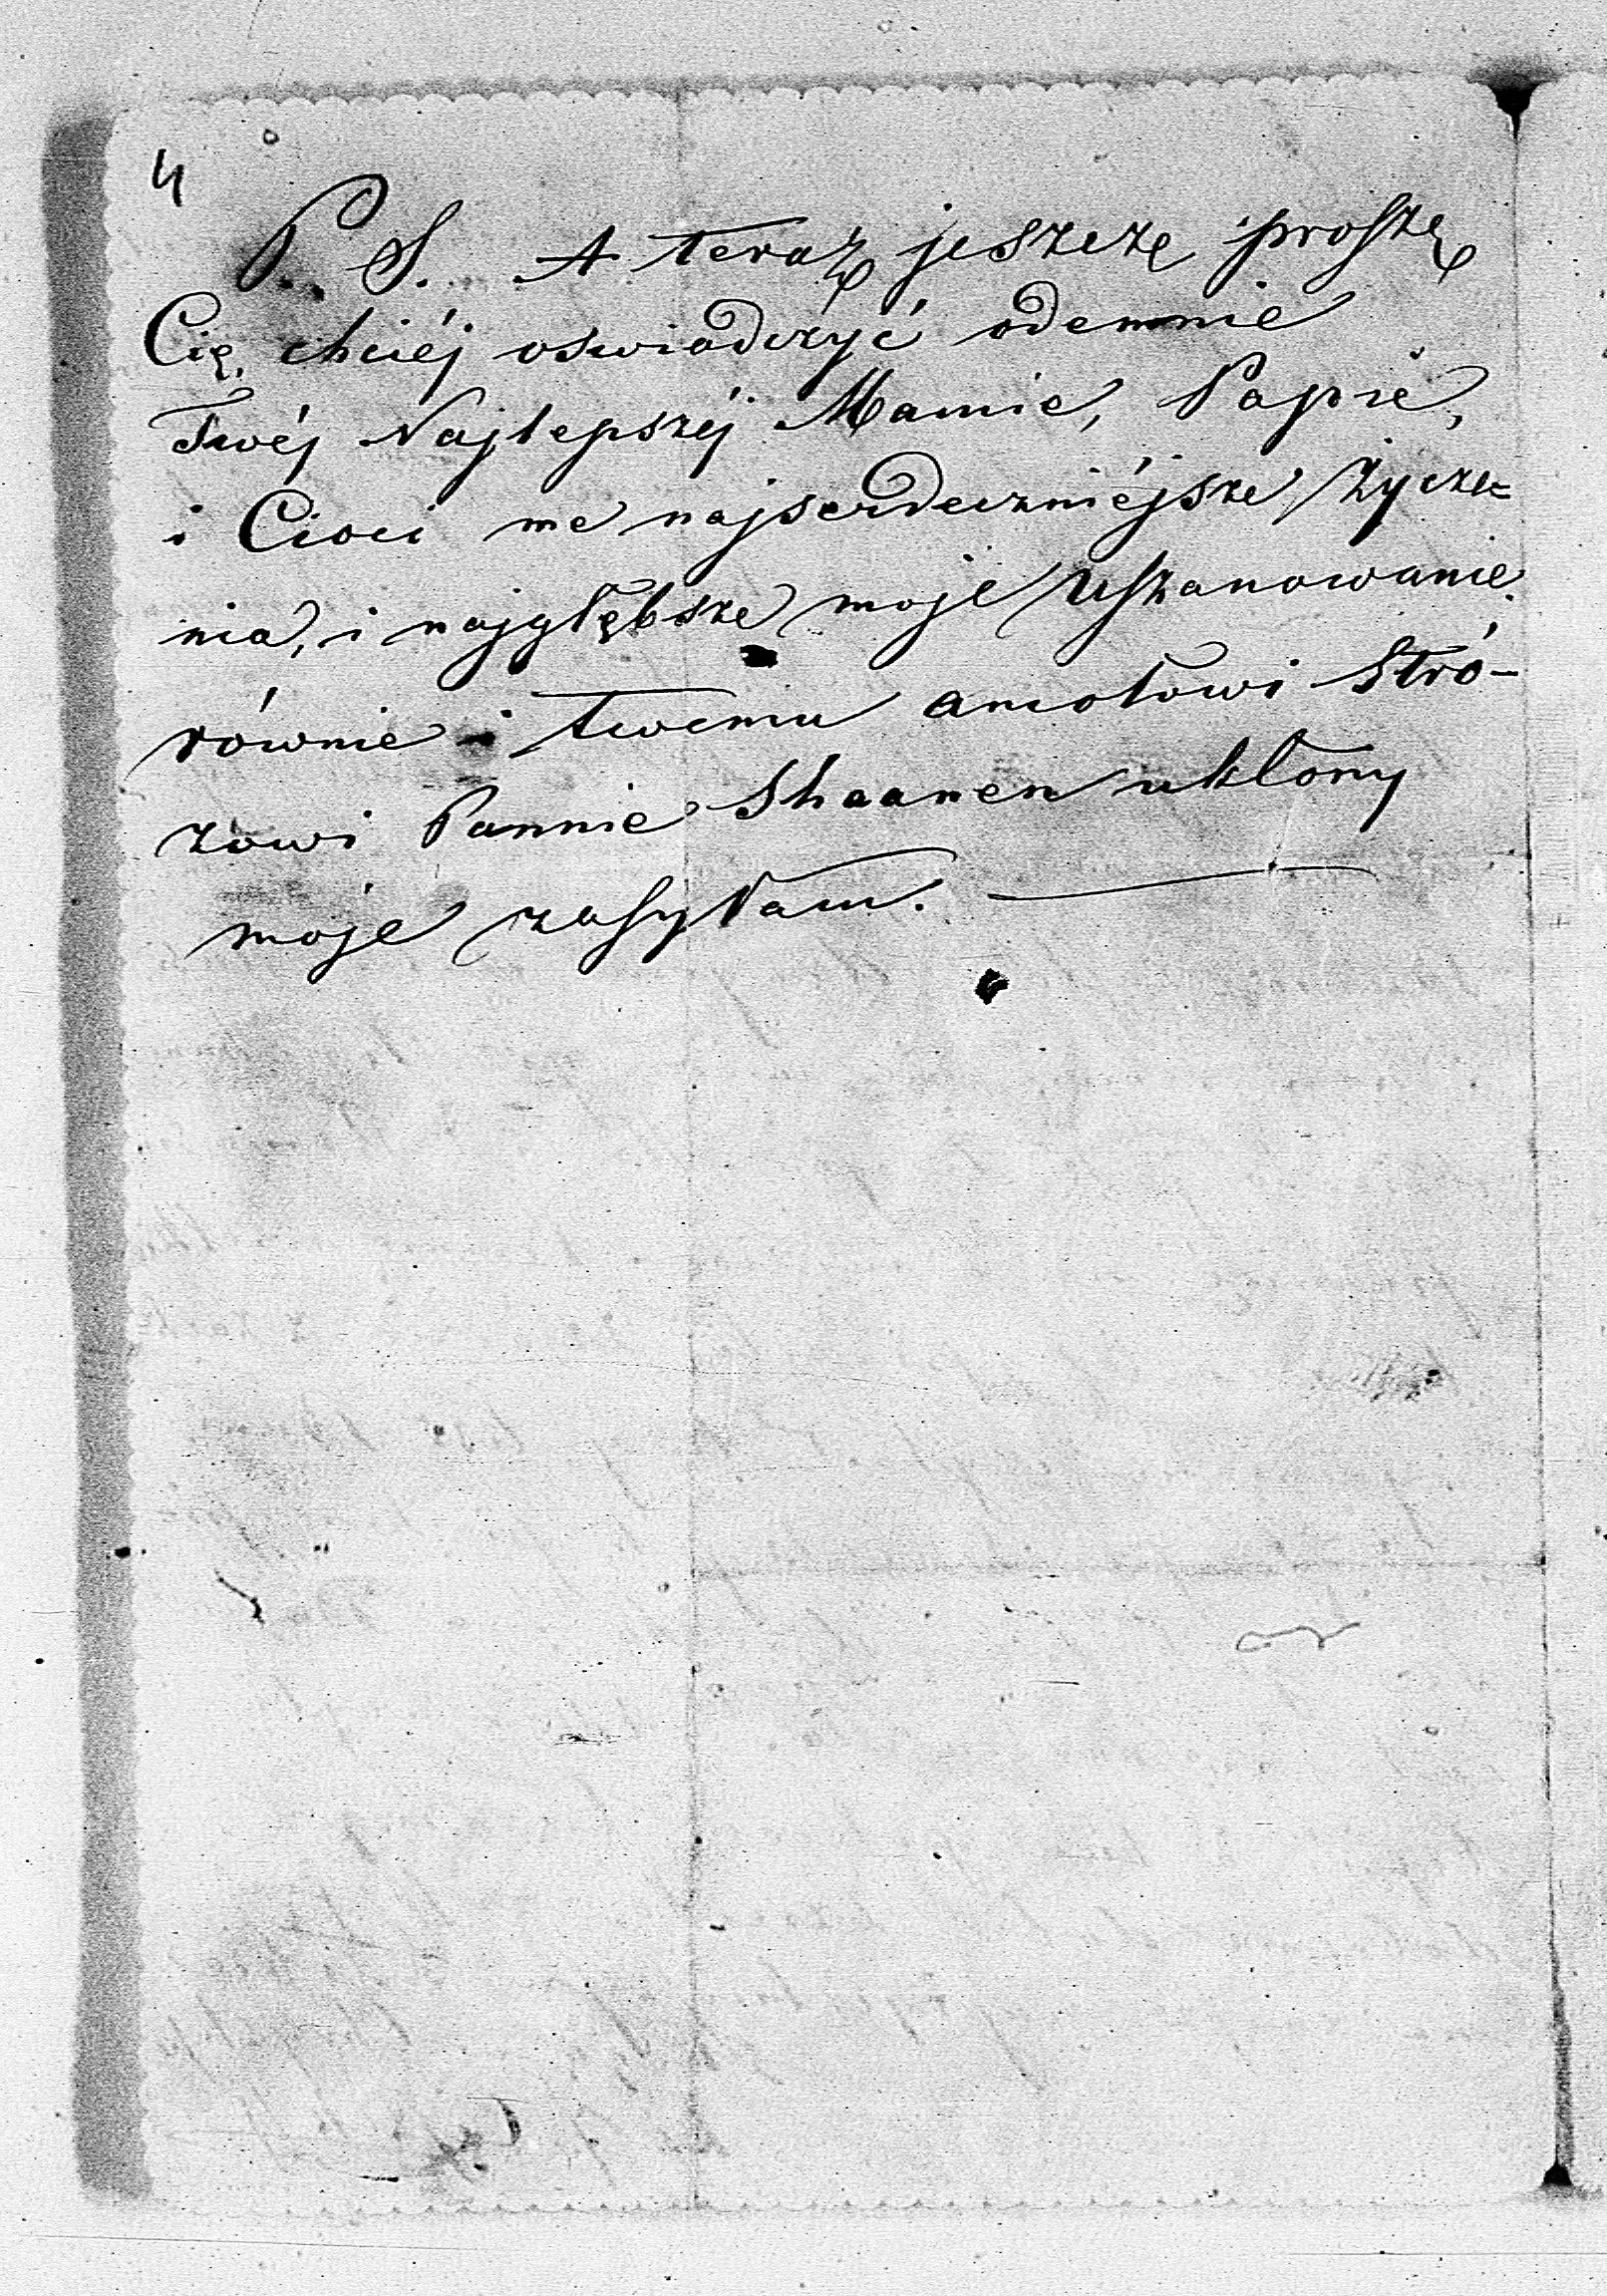 4
P. S. A teraz jeszcze proszę
Cię, chciéj oswiadczyć odemnie
Twéj Najlepszéj Mamie, Papie,
i Cioci me najserdeczniéjsze życze=
nia, i najgłębsze moje uszanowanie.
równie i twemu aniołowi Stró-
żowi Pannie Shaanen ukłony
moje zasyłam.